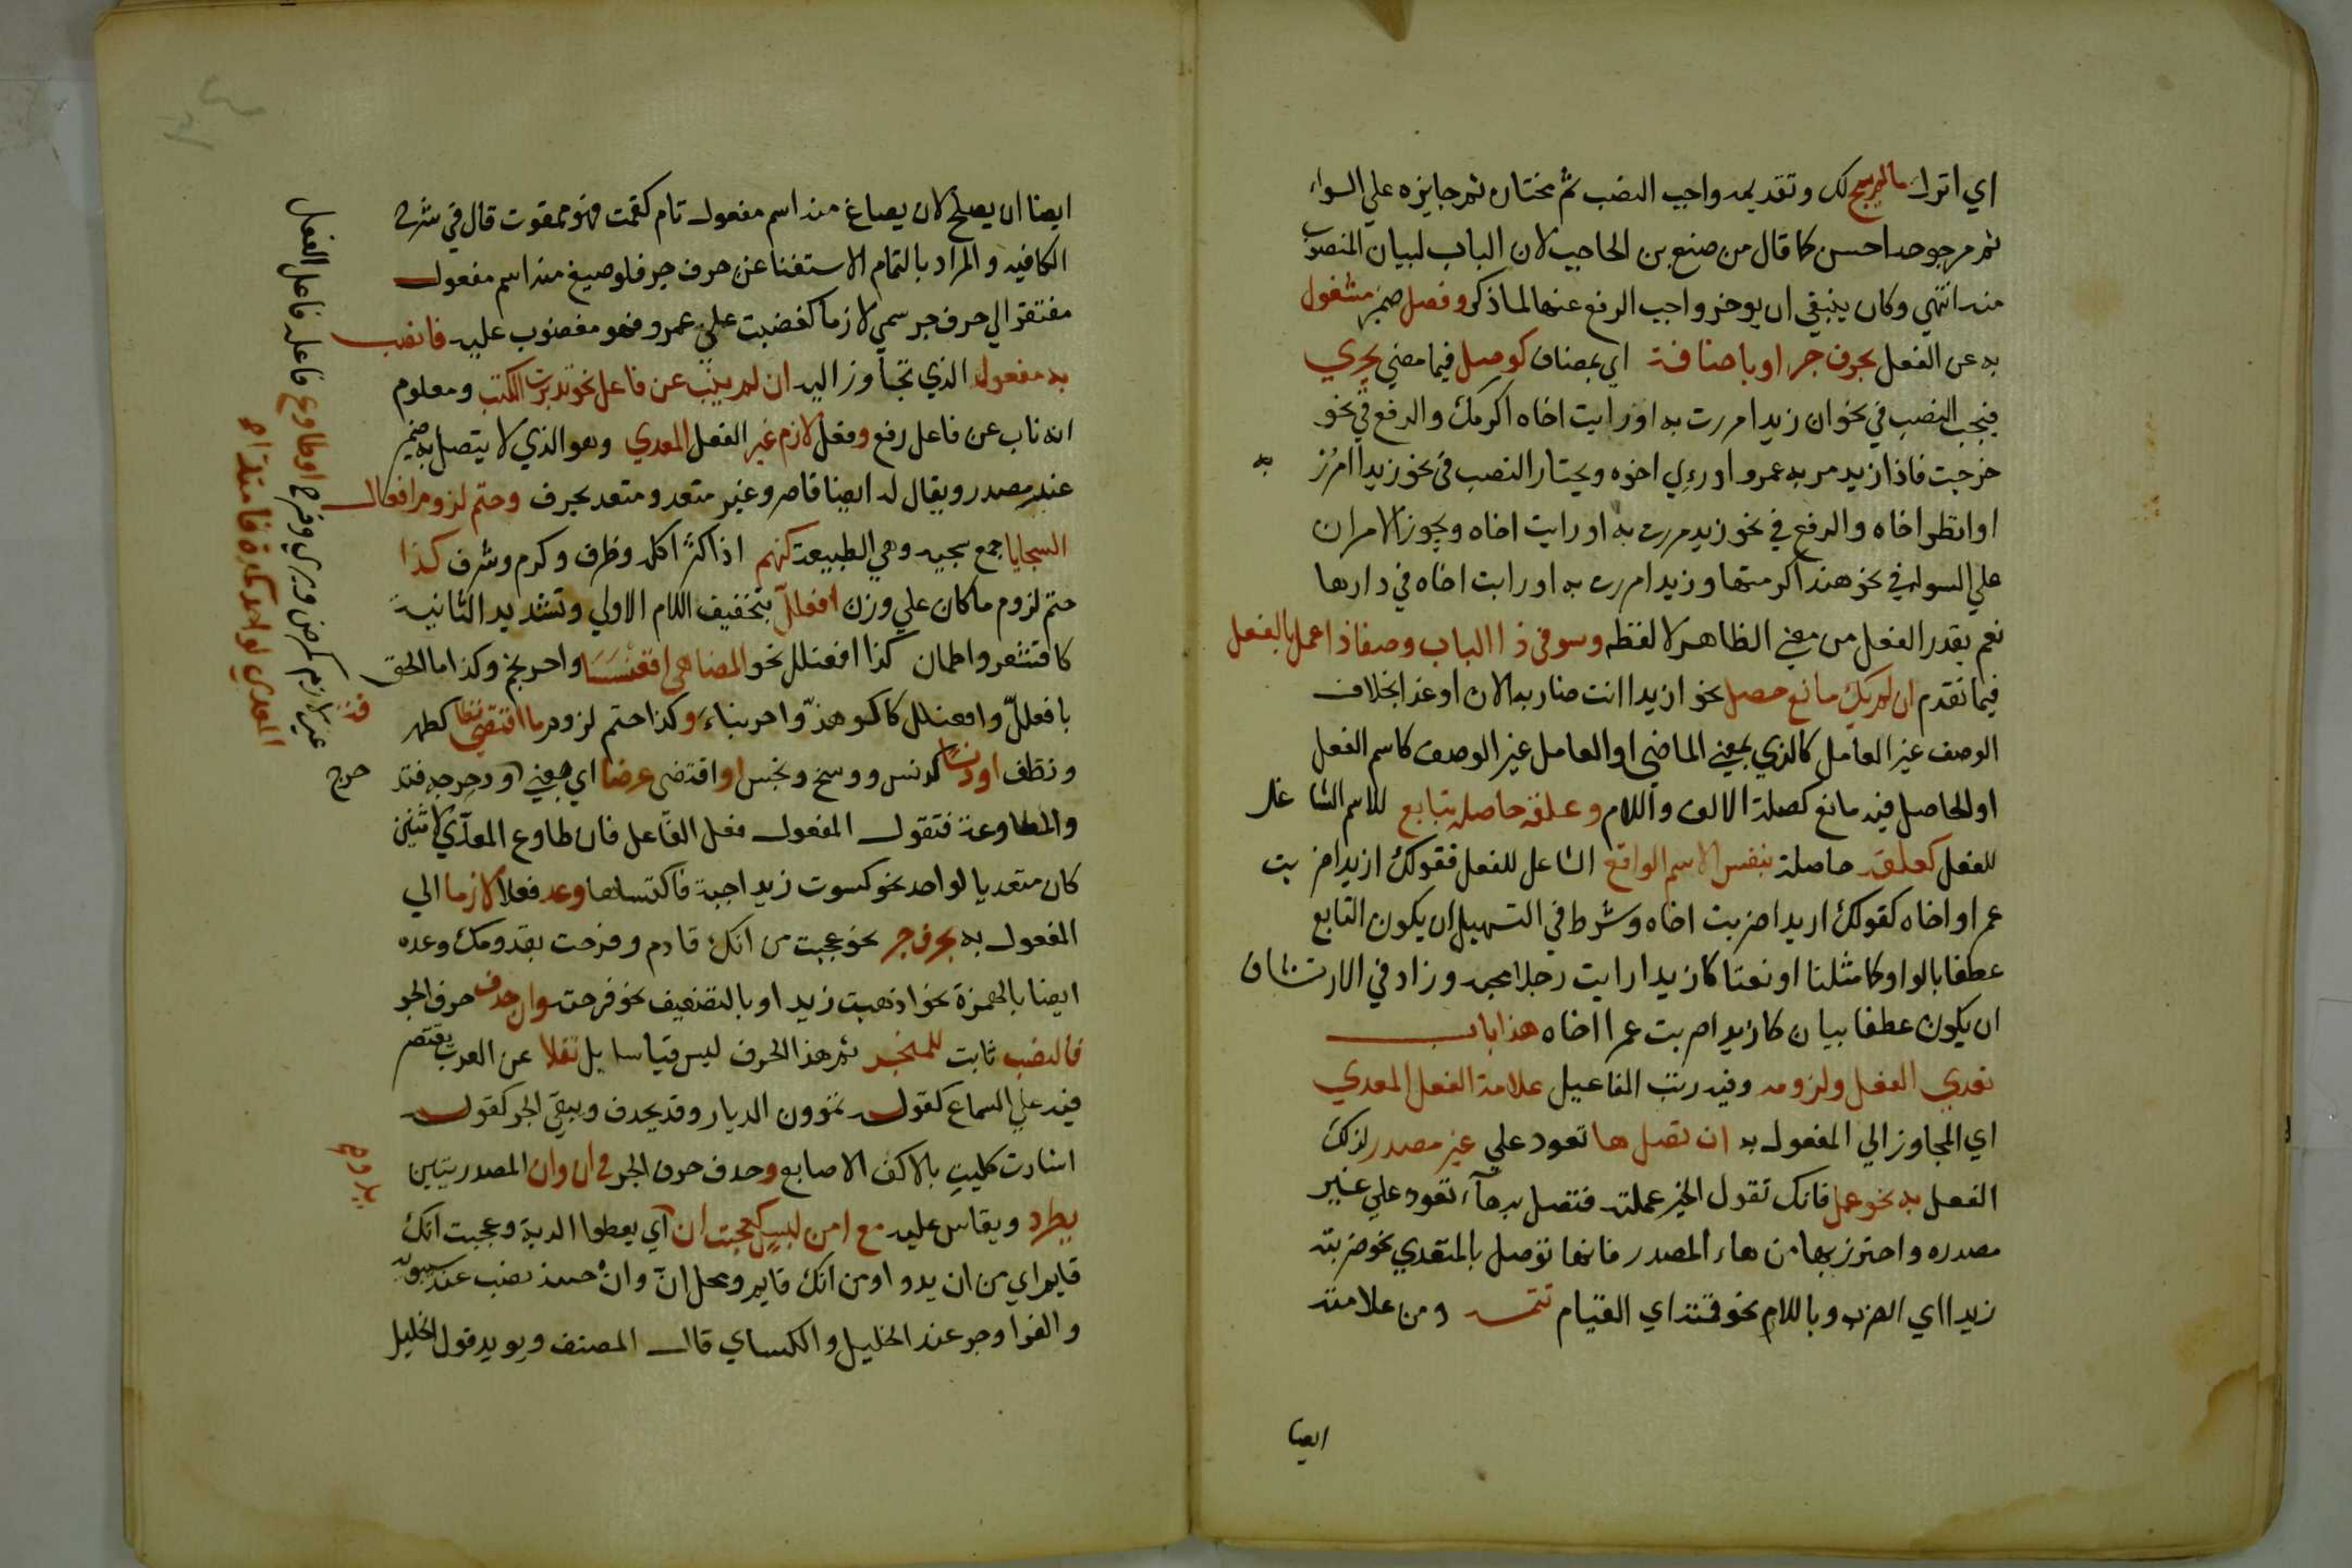 اي اترك مالم يبح لك وتقديمه واجب النصب ثم مختاره ثم جايزه علي السواء
ثم مرجوحه احسن كما قال من صنع بن الحاجب لان الباب لبيان المنصوب
منه انتهي وكان ينبغي ان يوخر واجب الرفع عنها لما ذكر وفصل ضمير مشغول
به عن الفعل بحرف جر او باضافة اي بمضاف كوصل فيما مضي يجري
فيجب النصب في نحو ان زيدا مررت به او رايت اخاه اكرمك والرفع في نحو
خرجت فاذا زيد مر به عمرو او رءي اخوه ويختار النصب في نحو زيدا امرر به
او انظر اخاه والرفع في نحو زيد مررت به او رايت اخاه ويجوز الامران
علي السواء في نحو هند اكرمتها وزيدا مررت به او رايت اخاه في دارها
نعم يقدر الفعل من معني الظاهر لا لفظه وسو في ذا الباب وصفا ذا عمل بالفعل
فيما تقدم ان لم يك مانع حصل نحو ازيدا انت ضاربه الان او غدا بخلاف
الوصف غير العامل كالذي بمعني الماضي او العامل غير الوصف كاسم الفعل
او الحاصل فيه مانع كصلة الالف واللام وعلقة حاصله بتابع للاسم الشاغل
للفعل كعلقة حاصلة بنفس الاسم الواقع الشاغل للفعل فقولك ازيدا ضربت
عمرا و اخاه كقولك ازيدا ضربت اخاه وشرط في التسهيل ان يكون التابع
عطفا بالواو كما مثلنا او نعتا كازيدا رايت رجلا يحبه وزاد في الارتشاف
ان يكون عطف بيان كازيدا ضربت عمرا اخاه هذا باب
تعدي الفعل ولزومه وفيه رتب المفاعيل علامة الفعل المعدي
اي المجاوز الي المفعول به ان تصل ها تعود علي غير مصدر لذلك
الفعل به نحو عمل فانك تقول الخير عملته فتصل به هاء تعود علي غير
مصدره واحترز بها من هاء المصدر فانها توصل بالمتعدي نحو ضربته
زيدا اي الضرب وباللام نحو قمته اي القيام تتمه ومن علامته
ايضا
ايضا ان يصلح لان يصاغ منه اسم مفعول تام كمقت فهو ممقوت قال في شرح
الكافيه والمراد بالتمام الاستغنا عن حرف جر فلو صيغ منه اسم مفعول
مفتقر الي حرف جر سمي لازما كغضبت علي عمرو فهو مغضوب عليه فانصب
به مفعوله الذي تجاوز اليه ان لم ينب عن فاعل نحو تدبرت الكتب ومعلوم
انه ناب عن فاعل رفع وفعل لازم غير الفعل المعدي وهو الذي لا يتصل به ضمير
غير مصدر ويقال له ايضا قاصر وغير متعد ومتعد بحرف وحتم لزوم افعال
السجايا جمع سجيه وهي الطبيعة كنهم اذا كثر اكله وظرف وكرم وشرف كذا
حتم لزوم ما كان علي وزن افعلل بتخفيف اللام الاولي وتشديد الثانية
كاقشعر واطمان كذا افعنلل نحو المضاهي اقعنسسا واحرنجم وكذا ما الحق
بافعلل وافعنلل كاكوهد واحرنباء وكذا حتم لزوم ما اقتضي نظافة كطهر
ونظف او دنسا كدنس ووسخ ونجس او اقتضي عرضا اي
والمطاوعة فتقول المفعول فعل الفاعل فان طاوع المعدي لاثنين
كان متعديا لواحد نحو كسوت زيدا جبة فاكتساها وعد فعلا لازما الي
المفعول به بحرف جر نحو عجبت من انك قادم وفرحت بقدومك وعده
ايضا بالهمزة نحو اذهبت زيدا وبالتضعيف نحو فرحته وان حذف حرف الجر
فالنصب ثابت للمنجر ثم هذا الحذف ليس قياسا بل نقلا عن العرب يقتصر
فيه علي السماع كقوله تمرون الديار وقد يحذف ويبقي الجر كقوله
اشارت كليب بالاكف الاصابع وحذف حرف الجر في ان وان المصدريتين
يطرد ويقاس عليه مع امن لبس كعجبت ان يدوا اي يعطوا الدية وعجبت انك
قايم اي من ان يدوا ومن انك قايم ومحل ان وان حينئذ نصب عند سيبويه
والفرا وجر عند الخليل والكساي قال المصنف ويويد قول الخليل
غير لازم كمرض وبري وفرح او طاوع فاعله فاعل الفعل
المعدي لواحد كمده فامتد